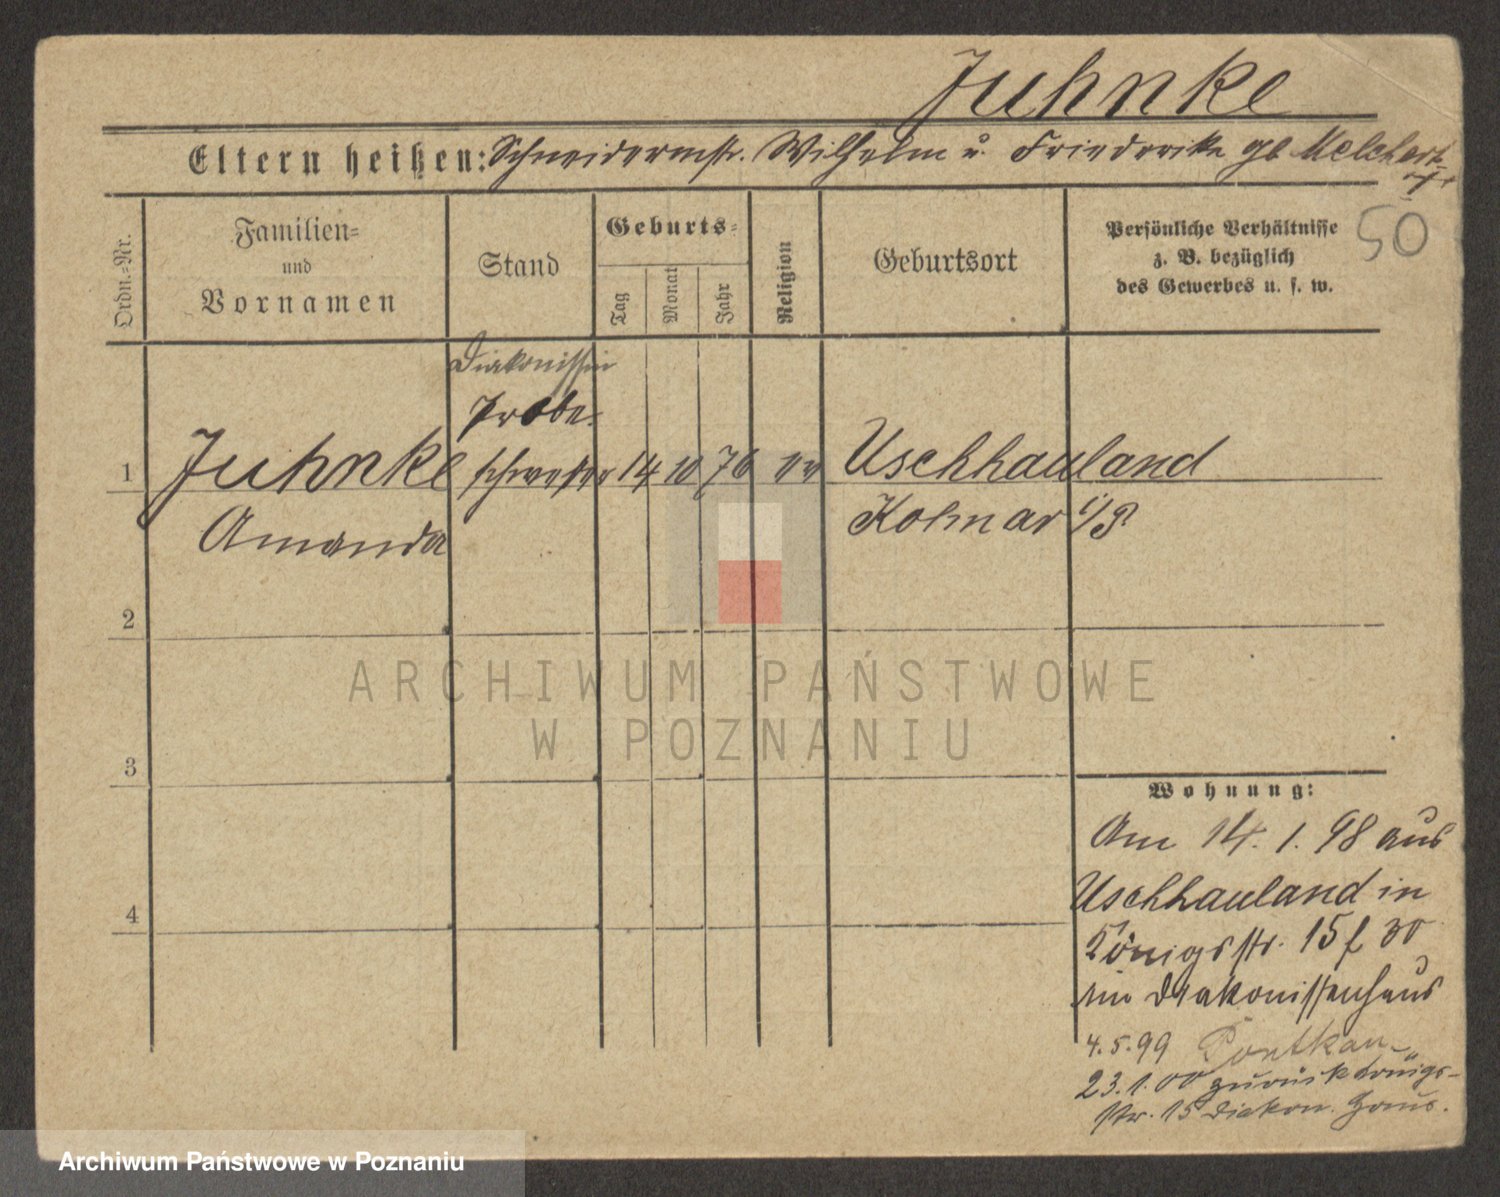 Juhnke
Eltern heißen: Schneidermstr. Wilhelm u. Friederike gb Melchert
50
Ordn.=Nr.
Familien=
und
Vornamen
Stand
Geburts=
Tag
Monat
Jahr
Religion
Geburtsort
Persönliche Verhältnisse
z. B. bezüglich
des Gewerbes u. s. w.
Diakonissin
Probe-
1 Juhnke schwester 14 10 76 ev Uschhauland
Amanda Kolmar i/P
2
3
4
ARCHIWUM PAŃSTWOWE
W POZNANIU
Wohnung:
Am 14.1.98 aus
Uschhauland in
Königsstr. 15 f 30
im Diakonissenhaus
4.5.99
23.1.00 zurück Königs-
str. 15 Diakon. Haus.
Archiwum Państwowe w Poznaniu